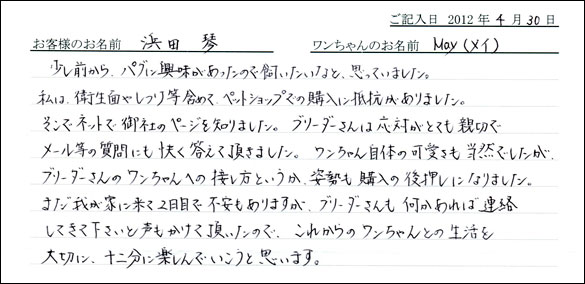 ご記入日 2012年 4月 30日
お客様のお名前 浜田 琴 ワンちゃんのお名前 May (メイ)
少し前から、パグに興味があったので飼いたいなと、思っていました。
私は、衛生面やしつけ等含めて、ペットショップでの購入に抵抗がありました。
そこでネットで御社のページを知りました。ブリーダーさんは応対がとても親切で
メール等の質問にも快く答えて頂きました。ワンちゃん自体の可愛さも当然でしたが、
ブリーダーさんのワンちゃんへの接し方というか、姿勢も購入の後押しになりました。
まだ我が家に来て2日目で不安もありますが、ブリーダーさんも何かあれば連絡
してきて下さいと声もかけて頂いたので、これからのワンちゃんとの生活を
大切に、十二分に楽しんでいこうと思います。